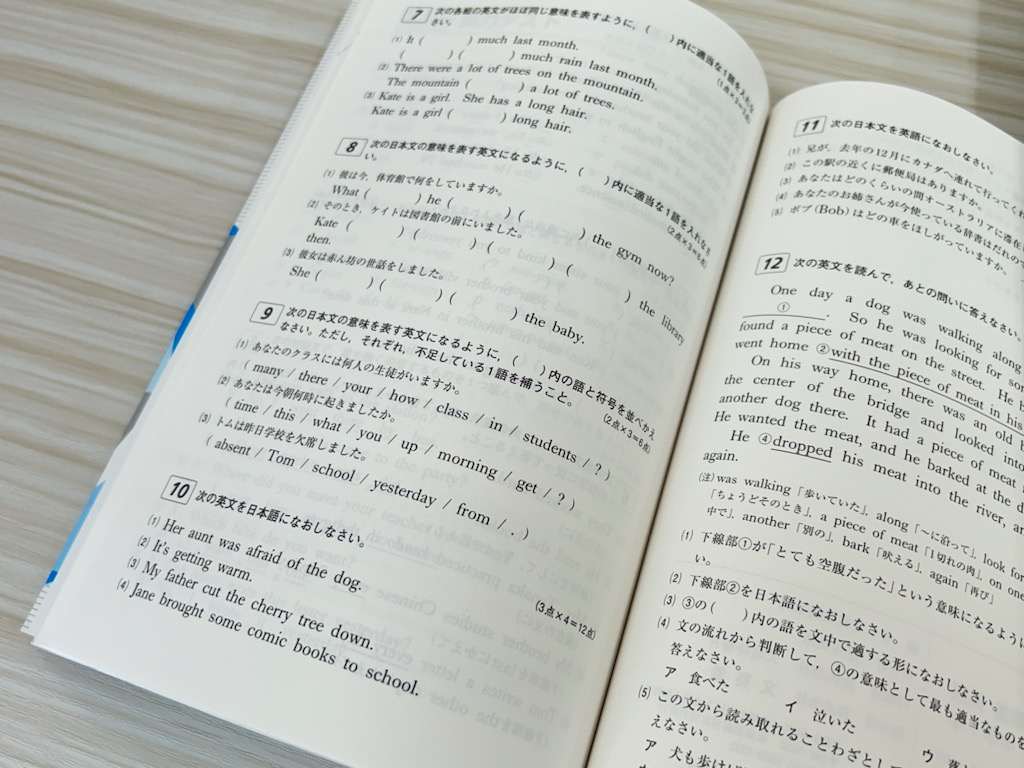 7 次の各組の英文がほぼ同じ意味を表すように，（　　）内に適当な1語を入れな
さい。
(1点×3＝3点)
(1) It (　　　) much last month.
(　　　) (　　　) much rain last month.
(2) There were a lot of trees on the mountain.
The mountain (　　　) a lot of trees.
(3) Kate is a girl. She has a long hair.
Kate is a girl (　　　) long hair.
8 次の日本文の意味を表す英文になるように，（　　）内に適当な1語を入れなさ
い。
(2点×3＝6点)
(1) 彼は今，体育館で何をしていますか。
What (　　　) he (　　　) (　　　) the gym now?
(2) そのとき，ケイトは図書館の前にいました。
Kate (　　　) (　　　) (　　　) (　　　) the library
then.
(3) 彼女は赤ん坊の世話をしました。
She (　　　) (　　　) (　　　) the baby.
9 次の日本文の意味を表す英文になるように，（　　）内の語と符号を並べかえ
なさい。ただし，それぞれ，不足している1語を補うこと。
(2点×3＝6点)
(1) あなたのクラスには何人の生徒がいますか。
( many / there / your / how / class / in / students / ? )
(2) あなたは今朝何時に起きましたか。
( time / this / what / you / up / morning / get / ? )
(3) トムは昨日学校を欠席しました。
( absent / Tom / school / yesterday / from / . )
10 次の英文を日本語になおしなさい。
(3点×4＝12点)
(1) Her aunt was afraid of the dog.
(2) It's getting warm.
(3) My father cut the cherry tree down.
(4) Jane brought some comic books to school.
11 次の日本文を英語になおしなさい。
(1) 兄が，去年の12月にカナダへ連れて行ってくれ
(2) この駅の近くに郵便局はありますか。
(3) あなたはどのくらいの間オーストラリアに滞在
(4) あなたのお姉さんが今使っている辞書はだれの
(5) ボブ(Bob)はどの車をほしがっていますか。
12 次の英文を読んで，あとの問いに答えなさい。
One day a dog was walking along
① . So he was looking for som
found a piece of meat on the street. He
went home ②with the piece of meat in his
On his way home, there was an old
the center of the bridge and looked into
another dog there. It had a piece of meat
He wanted the meat, and he barked at the d
He ④dropped his meat into the river, an
again.
(注) was walking「歩いていた」, along「〜に沿って」, look for
「ちょうどそのとき」, a piece of meat「1切れの肉」, on one
中で」, another「別の」, bark「吠える」, again「再び」
(1) 下線部①が「とても空腹だった」という意味になるように
い。
(2) 下線部②を日本語になおしなさい。
(3) ③の（　　）内の語を文中で適する形になおしなさい。
(4) 文の流れから判断して，④の意味として最も適当なものを
答えなさい。
ア 食べた　イ 泣いた　ウ
(5) この文から読み取れることわざとして
えなさい。
ア 犬も歩け